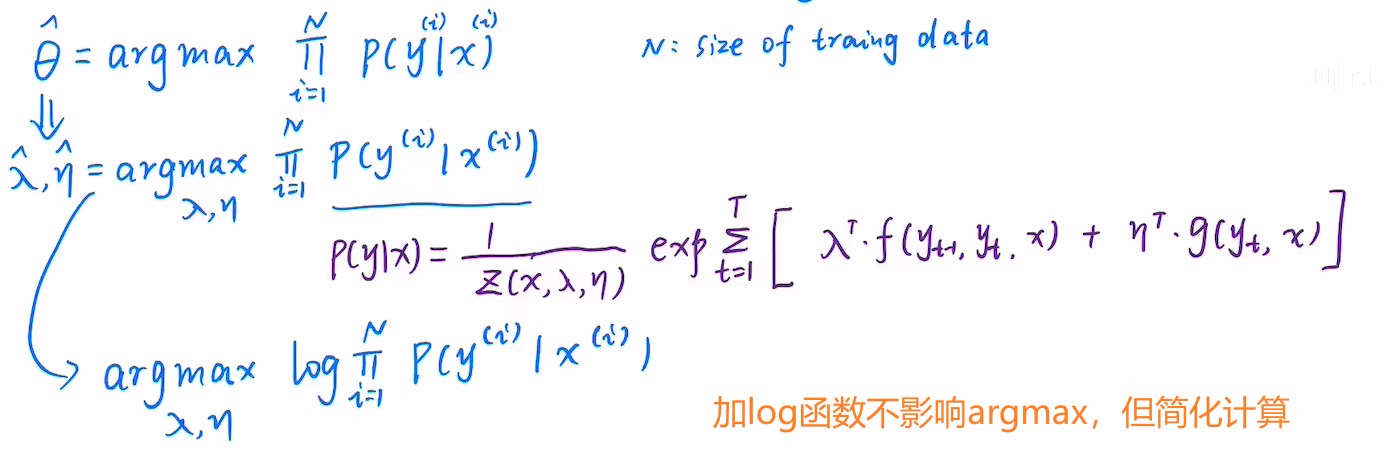 θ̂ = argmax ∏_{i=1}^{N} P(y^{(i)}|x^{(i)}) N: size of traing data
⇓
λ̂, η̂ = argmax_{λ,η} ∏_{i=1}^{N} P(y^{(i)}|x^{(i)})
P(y|x) = 1/Z(x,λ,η) exp ∑_{t=1}^{T} [ λ^T·f(y_{t-1}, y_t, x) + η^T·g(y_t, x) ]
→ argmax_{λ,η} log ∏_{i=1}^{N} P(y^{(i)}|x^{(i)})
加log函数不影响argmax，但简化计算